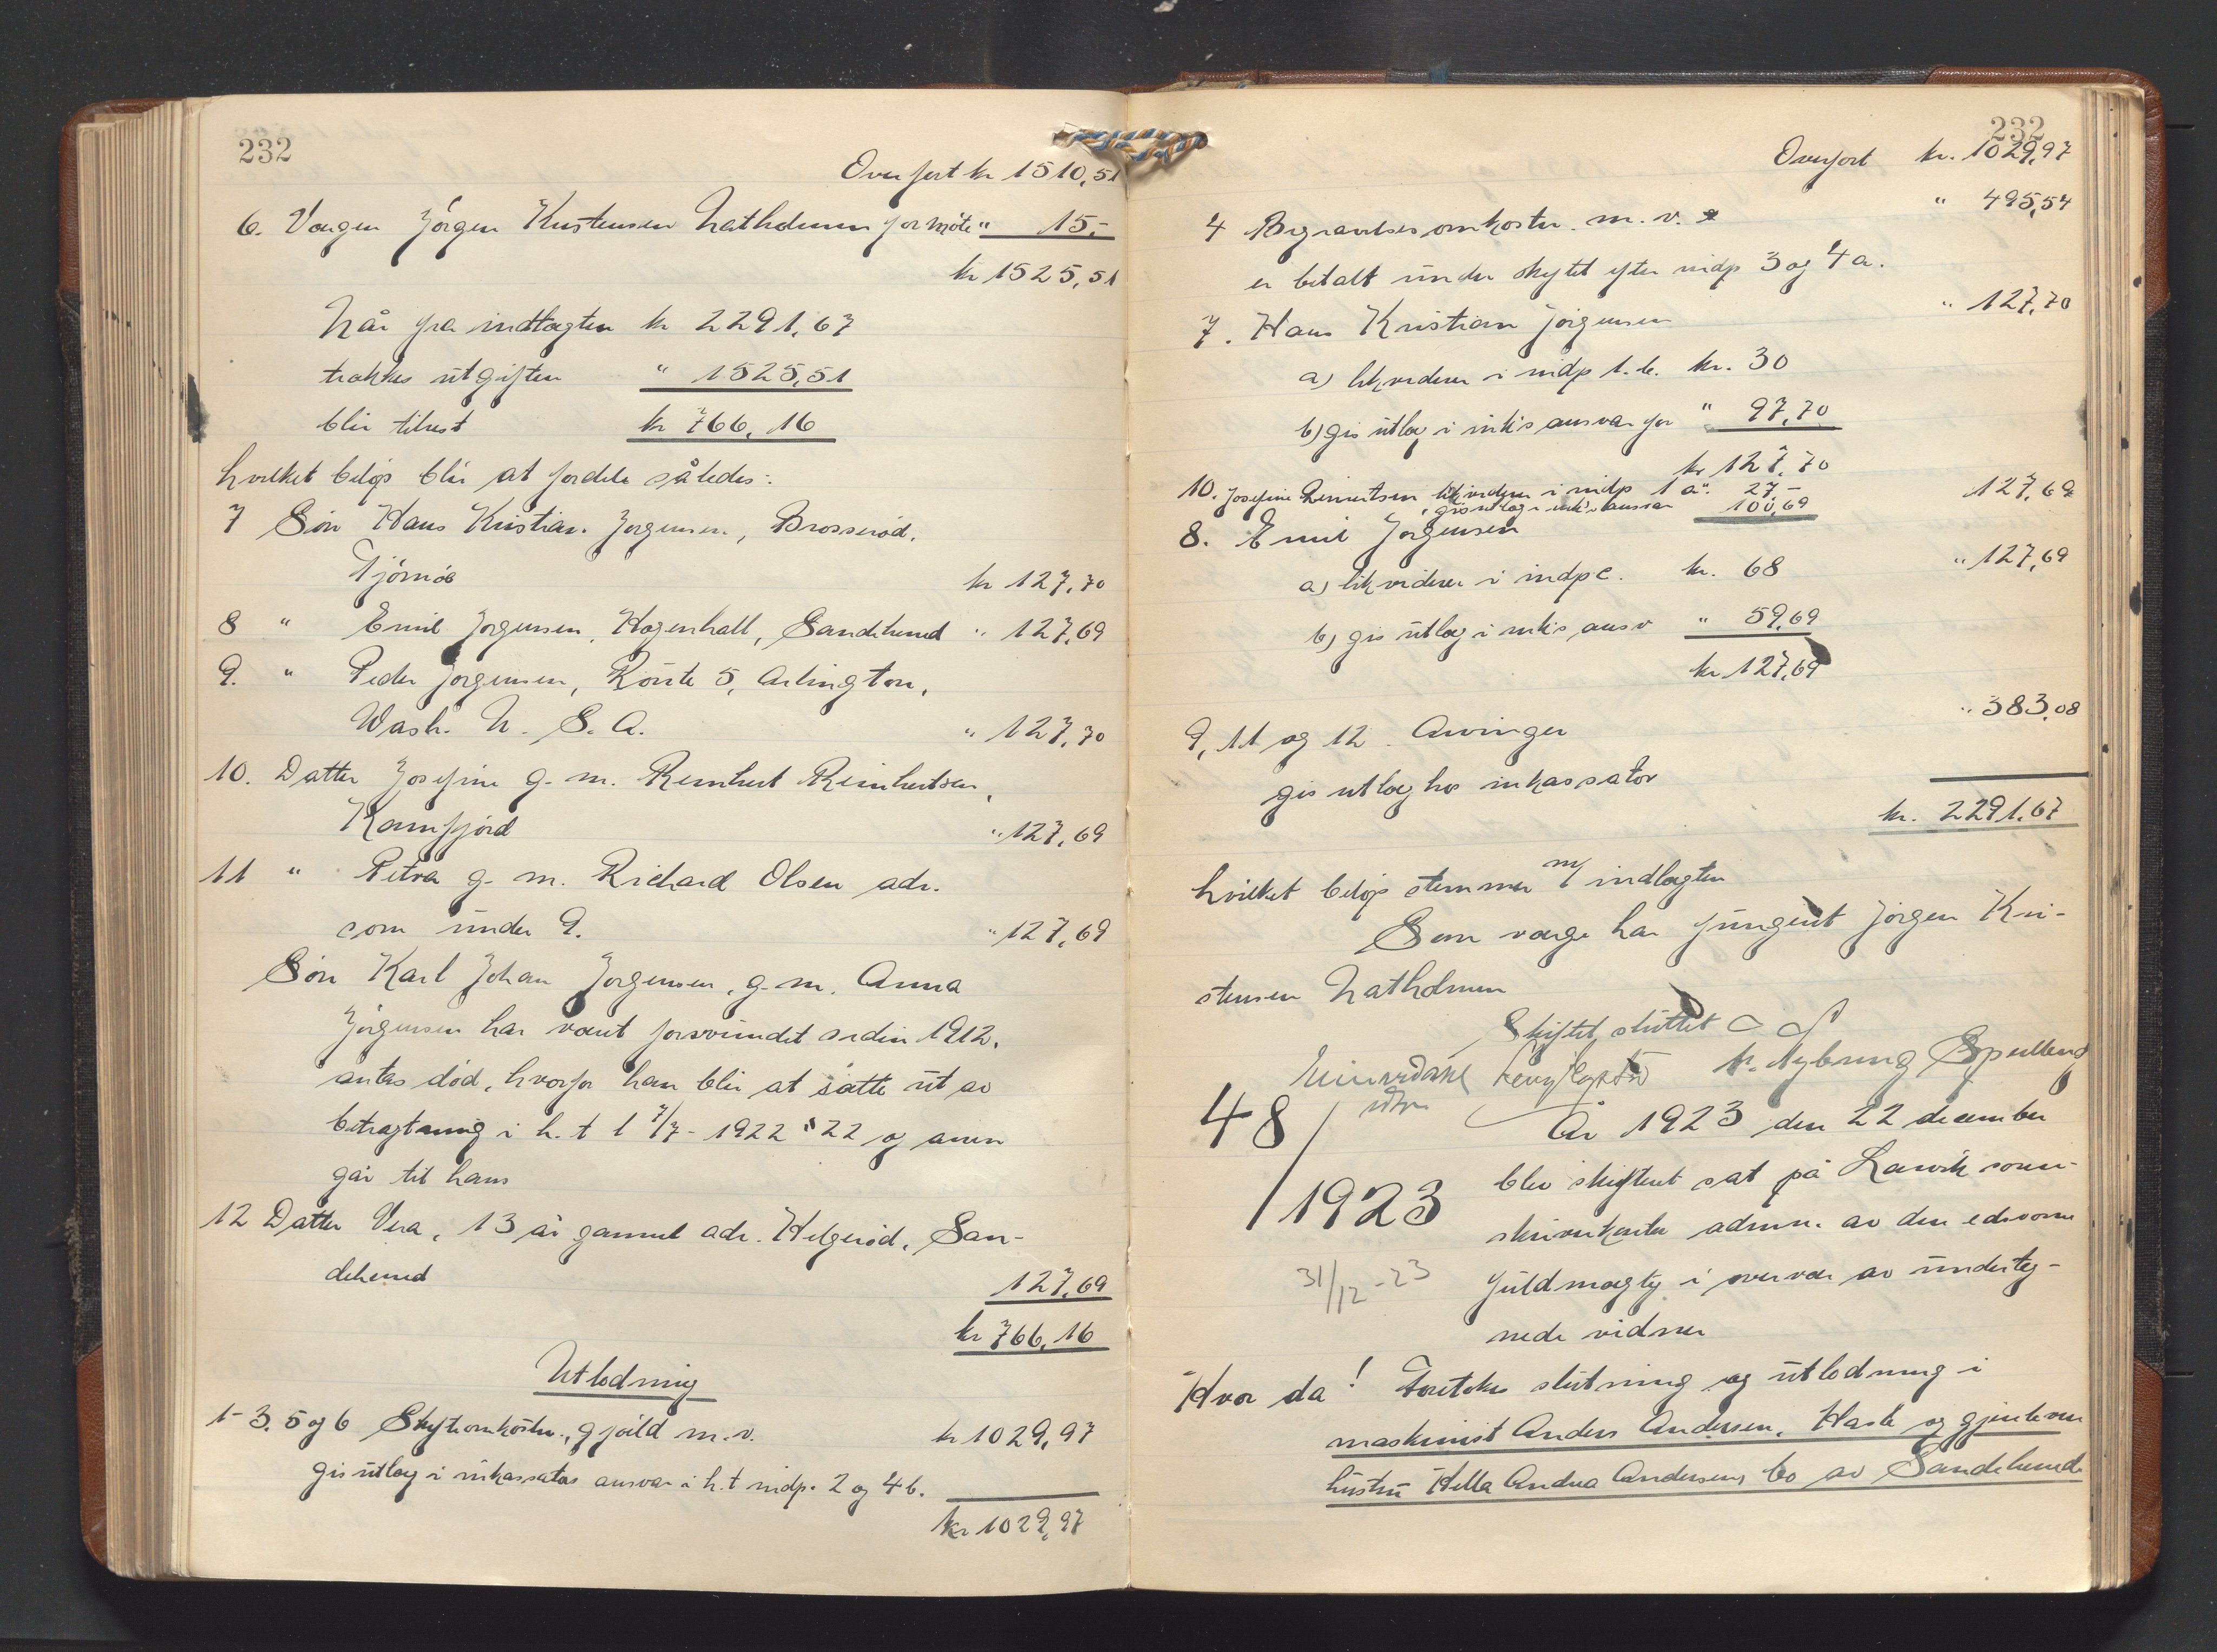 232
Overført kr 1510,51
6. Vergen Jörgen Kristensen Natholmen for möte " 15,-
kr 1525,51
Når fra indtægten kr 2291,67
trækkes utgiften " 1525,51
blir tilrest kr 766,16
hvilket belöp blir at fordele således:
7 Sön Hans Kristian Jörgensen, Brosseröd,
Tjömöe kr 127,70
8 " Emil Jörgensen, Hogenhall, Sandeherred " 127,69
9. " Peder Jorgensen, Route 5, Arlington,
Wash. U. S. A. " 127,70
10. Datter Josefine g. m. Reinhert Reinhertsen,
Kamfjord " 127,69
11 " Petra g. m. Richard Olsen adr.
som under 9. " 127,69
Sön Karl Johan Jorgensen, g. m. Anna
Jörgensen har været forsvundet siden 1912,
antas död, hvorfor han blir at sætte ut av
betragtning i h. t l 7/7 - 1922 § 22 og arven
går til hans
12 Datter Vera, 13 år gammel adr. Helgeröd, San-
deherred 127,69
kr 766,16
Utlodning
1-3, 5 og 6 Skifteomkostn., gjæld m. v. kr 1029,97
gis utlæg i inkassators ansvar i h. t indp. 2 og 4 b.
kr 1029,97
232
Overfört kr. 1029,97
4 Begravelsesomkostn. m. v. " 495,54
er betalt under skiftet efter indp 3 og 4 a.
7. Hans Kristian Jörgensen " 127,70
a) likviderer i indp 1. b. kr. 30
b) gis utlæg i ink's ansvar for " 97,70
kr 127,70
10. Josefine Reinertsen likviderer i indp 1 a ". 27,- 127,69
gis utlæg i ink's ansvar 100,69
8. Emil Jorgensen " 127,69
a) likviderer i indp c. kr. 68
b) gis utlæg i inks ansv " 59,69
kr 127,69
9, 11 og 12. Arvinger " 383,08
gis utlæg hos inkassator
kr. 2291,67
hvilket belöp stemmer m/ indtægten
Som værge har fungert Jörgen Kri-
stensen Natholmen
Skiftet sluttet
48/1923
År 1923 den 22 december
blev skifteret sat på Larvik soren-
skriverkontor admin. av den edsvorne
31/12-23
fuldmægtig i overvær av underteg-
nede vidner
Hvor da! Foretokes slutning og utlodning i
maskinist Anders Andersen, Hasle og gjenlevende
hustru Hella Andrea Andersens bo av Sandeherred